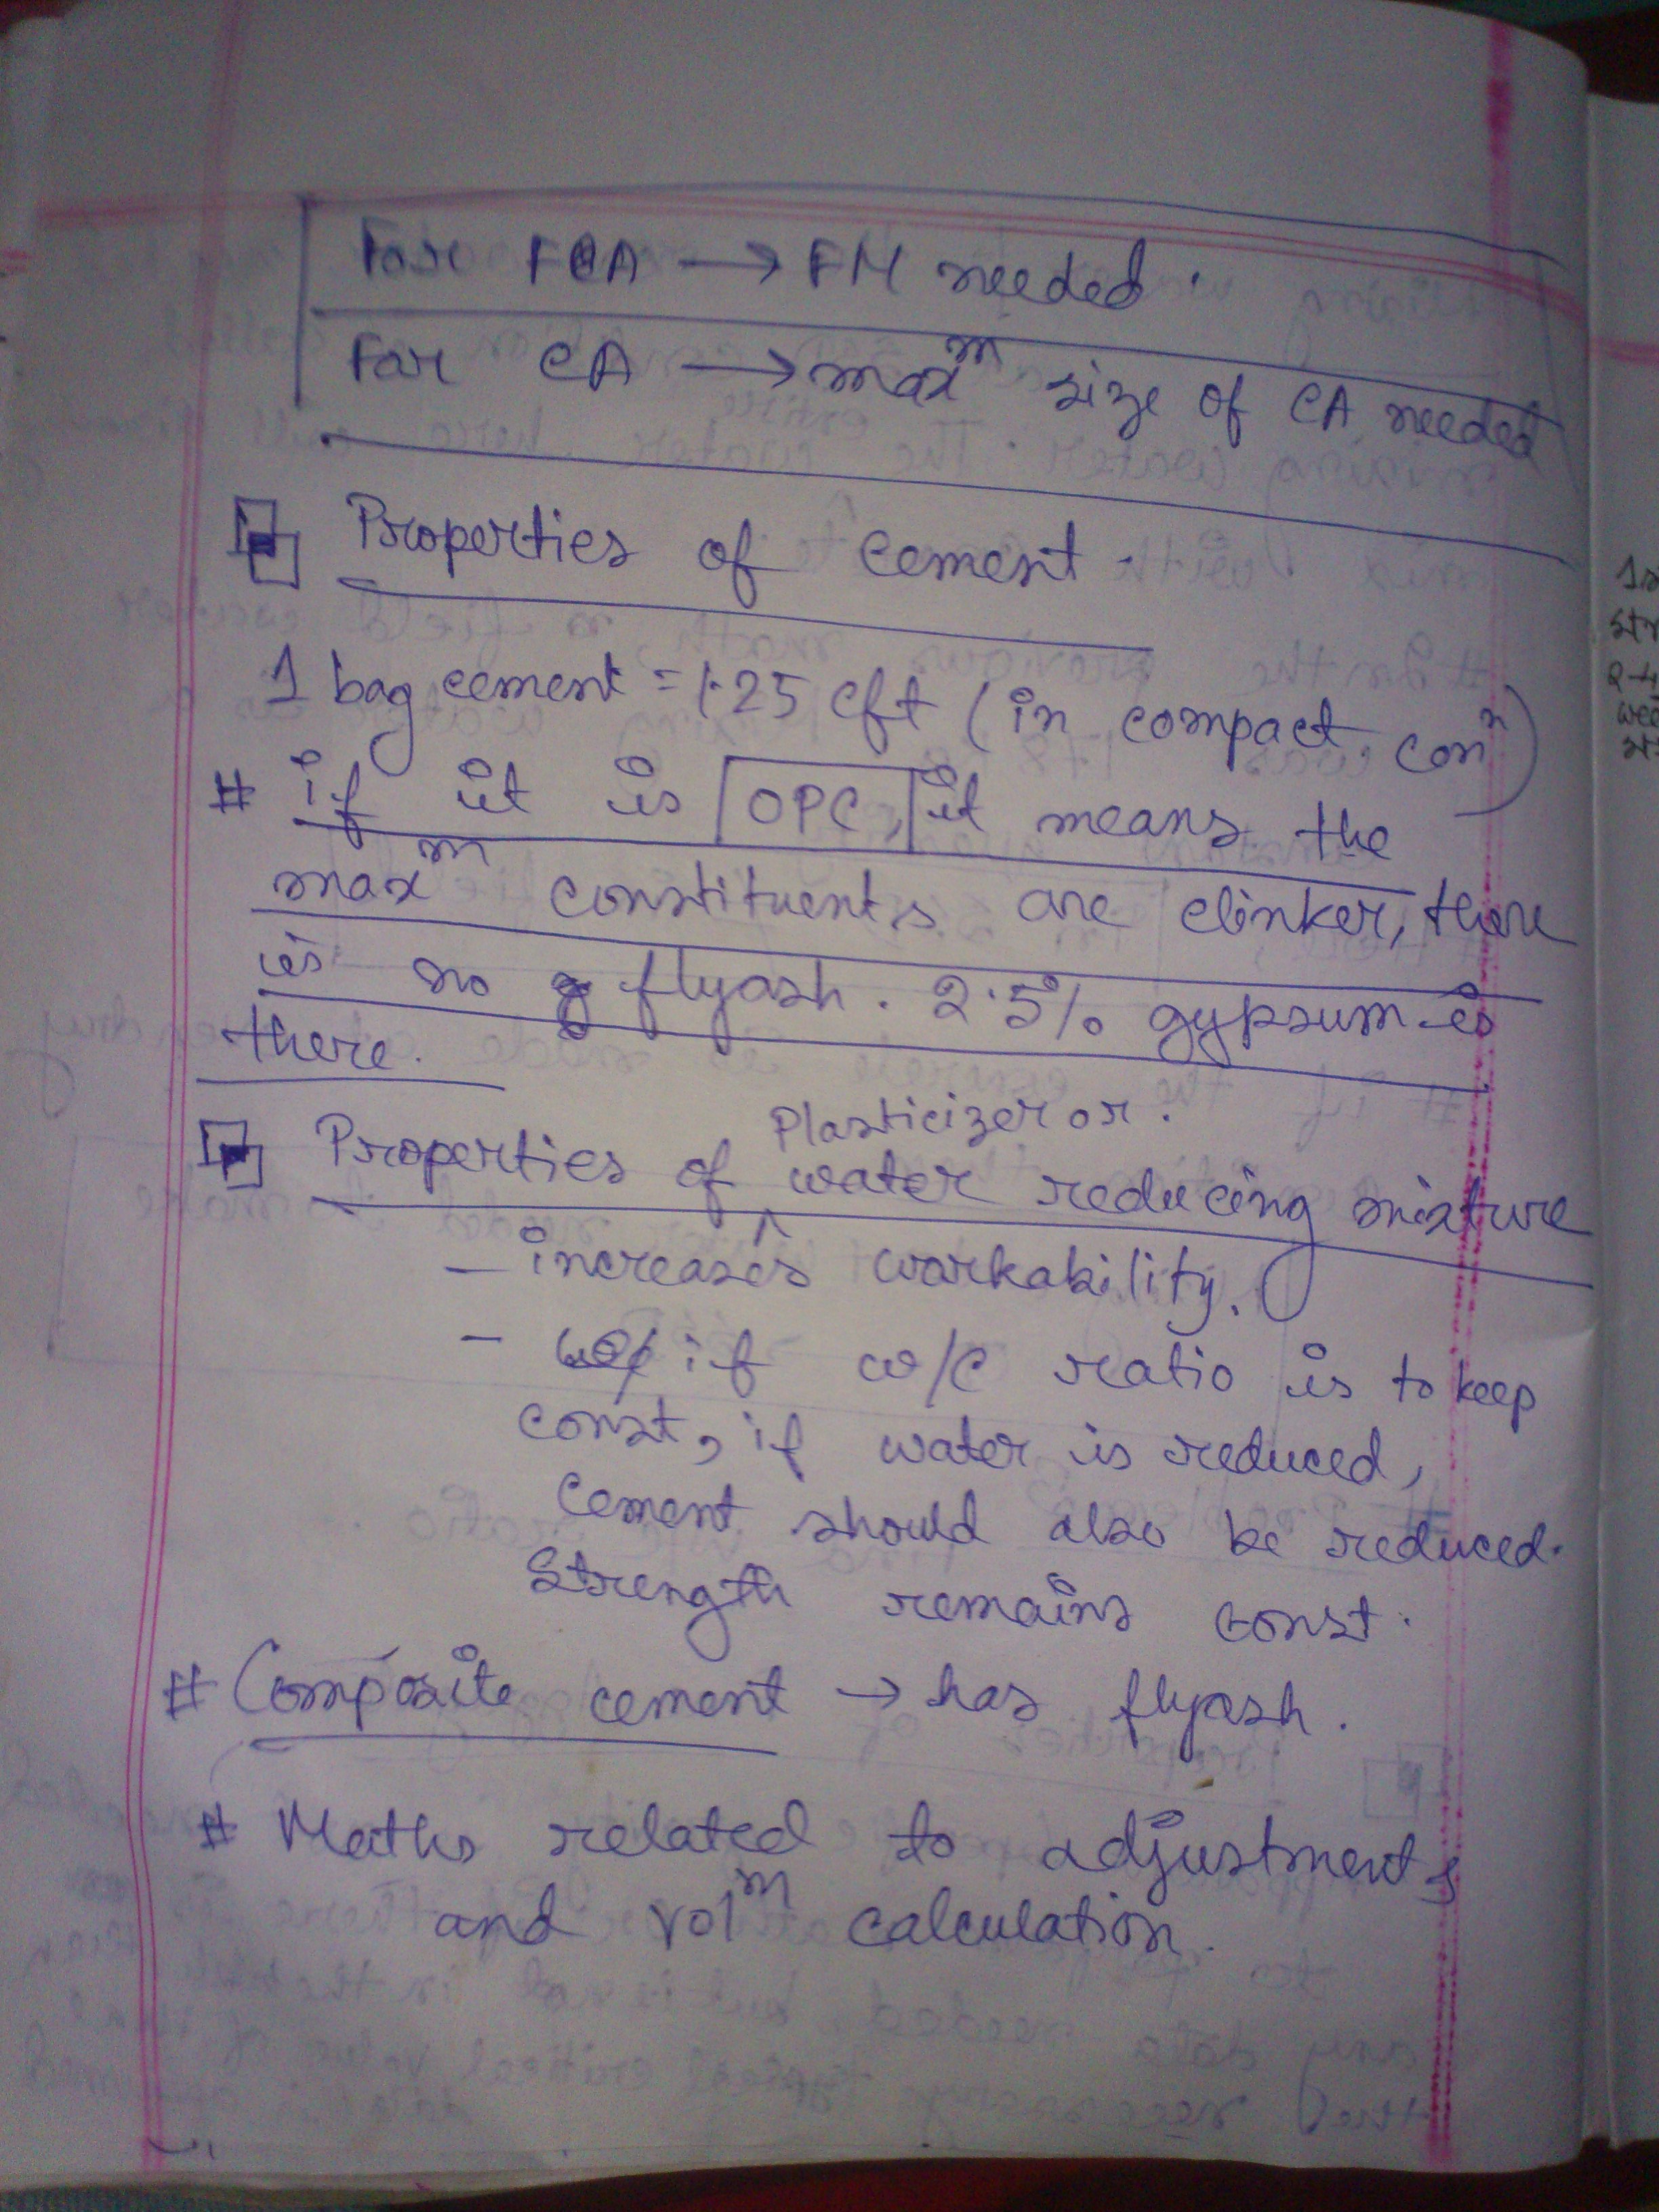 For FA → FM needed.
For CA → maxᵐ size of CA needed
Properties of cement.
1 bag cement = 1.25 cft (in compact conⁿ)
# if it is OPC, it means the
maxᵐ constituents are clinker, there
is no flyash. 2.5% gypsum is
there.
Plasticizer or.
Properties of water reducing mixture
- increases workability.
- if w/c ratio is to keep
const, if water is reduced,
cement should also be reduced.
Strength remains const.
# Composite cement → has flyash.
# Maths related to adjustments
and volᵐ calculation.